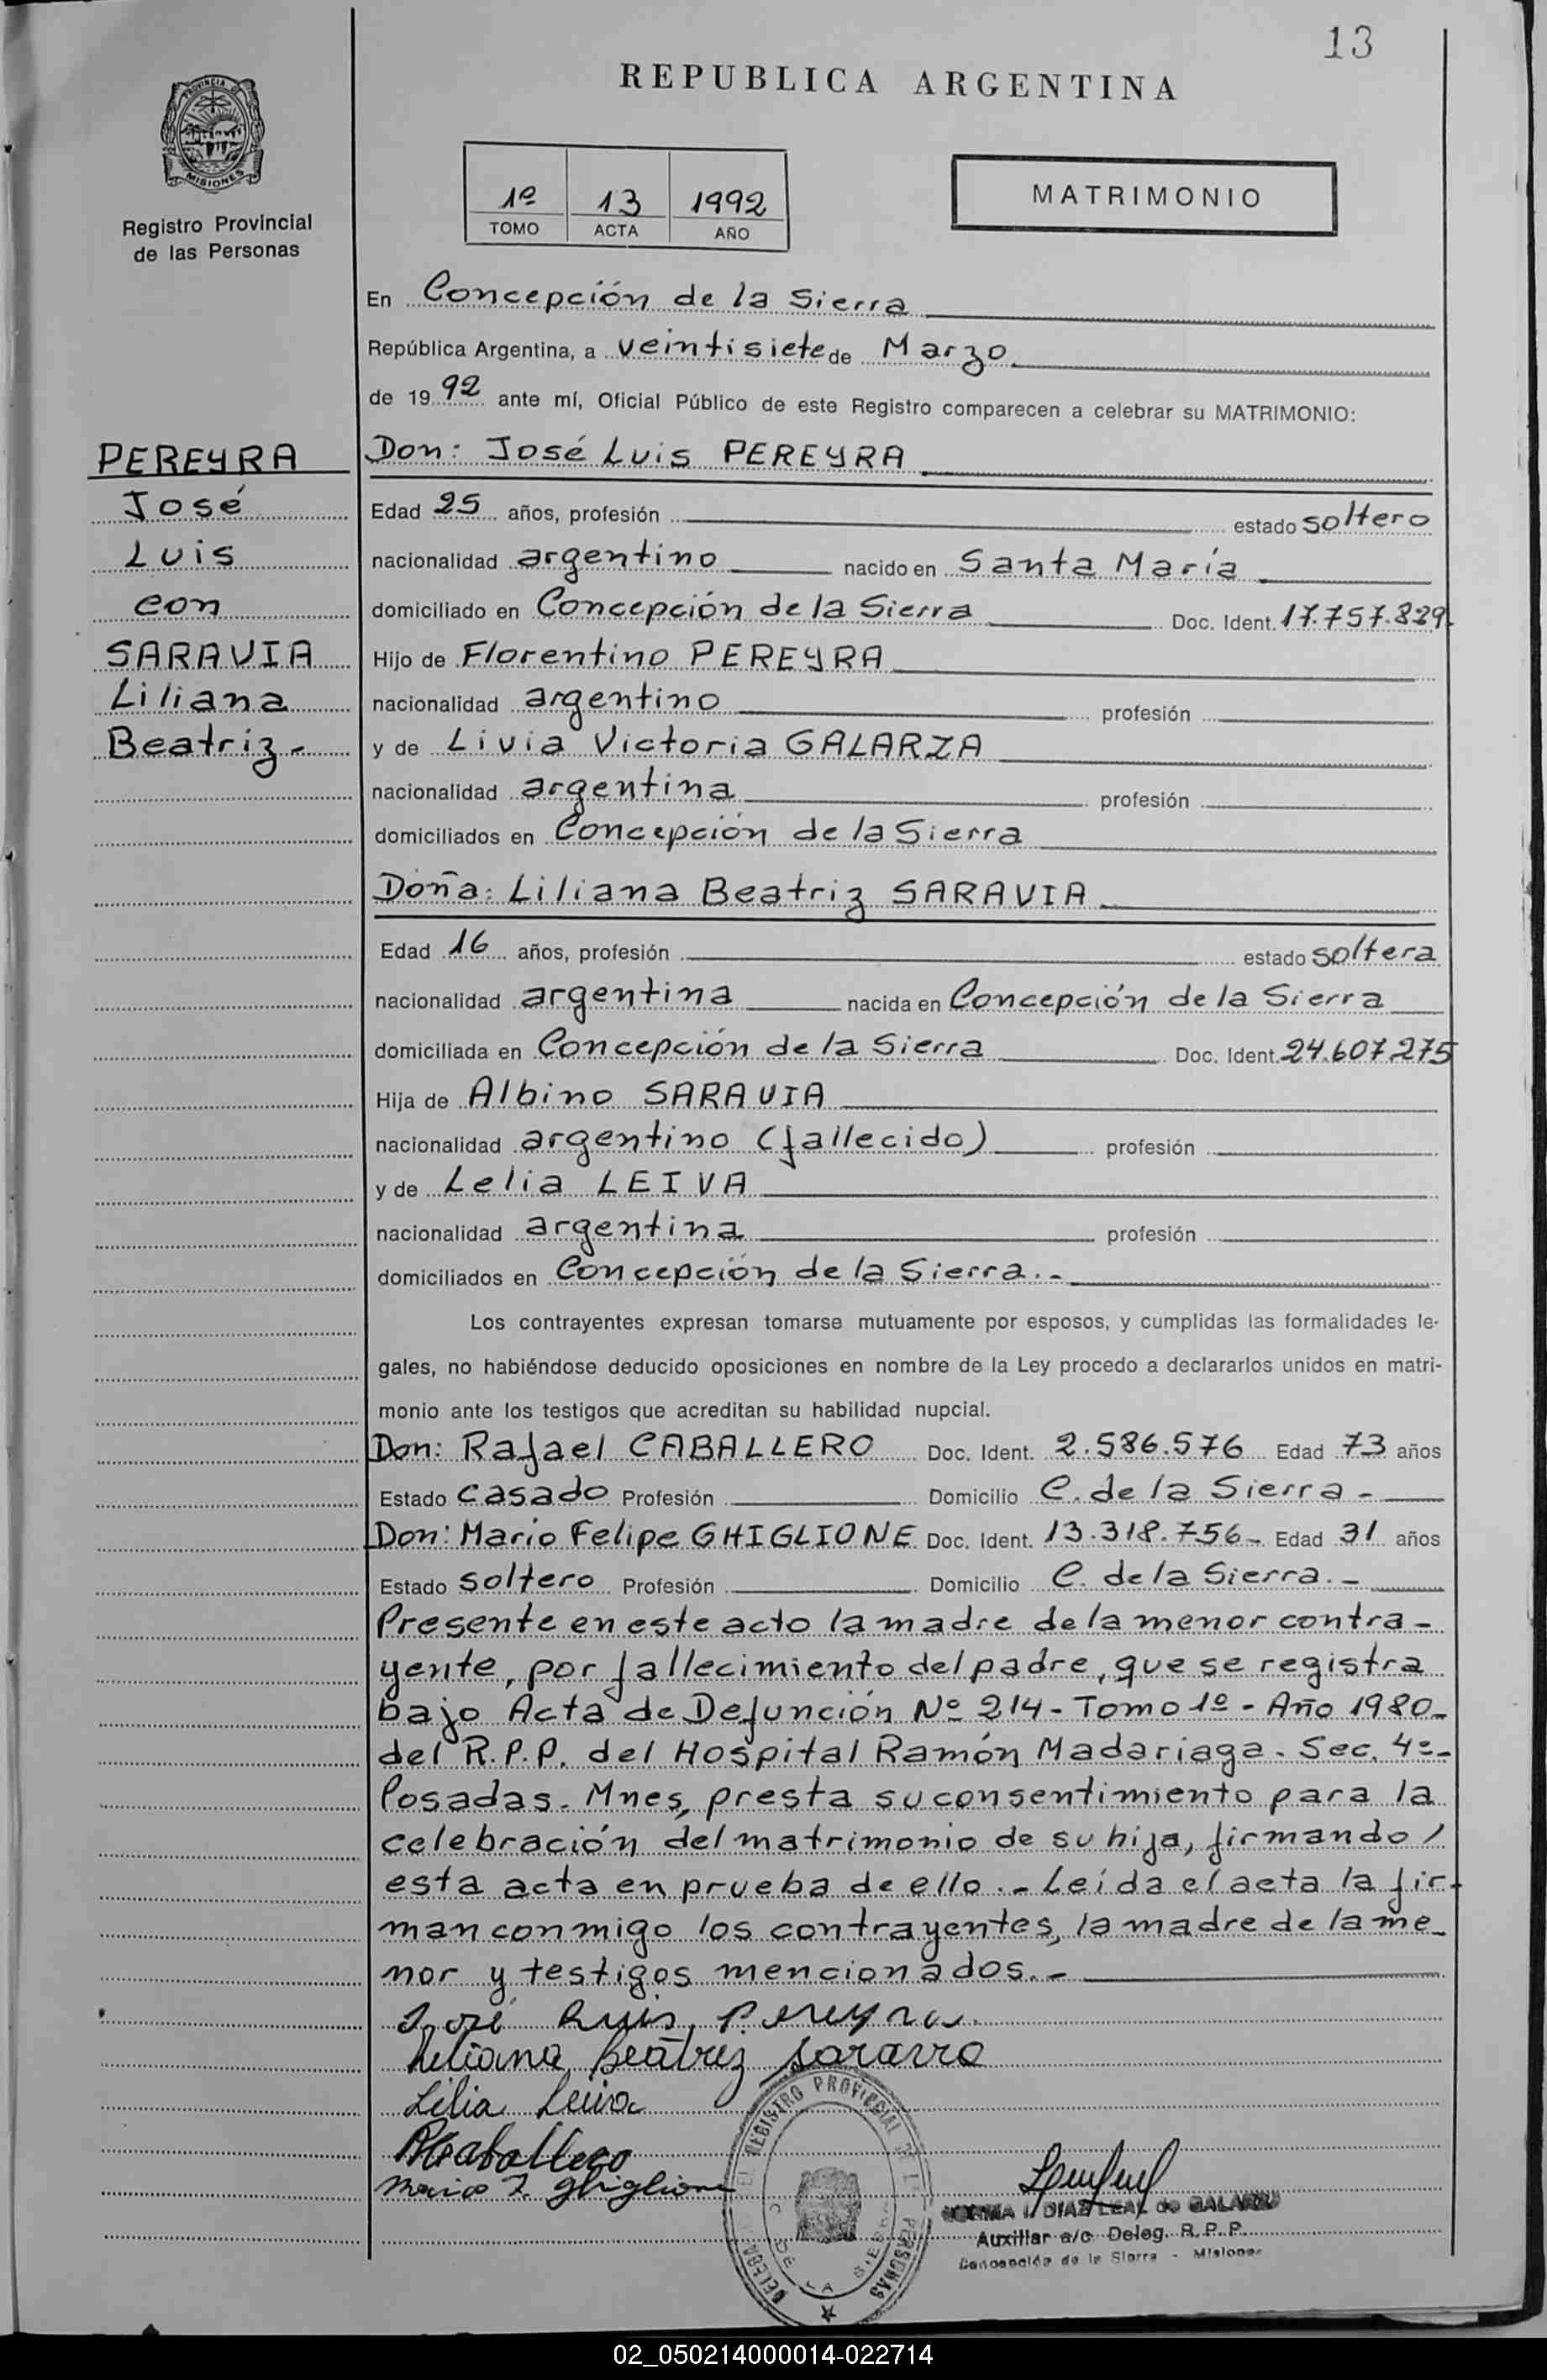 13
REPUBLICA ARGENTINA
PROVINCIA DE
MISIONES
Registro Provincial
de las Personas
1º 13 1992
TOMO ACTA AÑO
MATRIMONIO
En Concepción de la Sierra
República Argentina, a veintisiete de Marzo
de 1992 ante mí, Oficial Público de este Registro comparecen a celebrar su MATRIMONIO:
PEREYRA
José
Luis
con
SARAVIA
Liliana
Beatriz.-
Don: José Luis PEREYRA
Edad 25 años, profesión estado soltero
nacionalidad argentino nacido en Santa María
domiciliado en Concepción de la Sierra Doc. Ident. 17.757.829.
Hijo de Florentino PEREYRA
nacionalidad argentino profesión
y de Livia Victoria GALARZA
nacionalidad argentina profesión
domiciliados en Concepción de la Sierra
Doña: Liliana Beatriz SARAVIA
Edad 16 años, profesión estado soltera
nacionalidad argentina nacida en Concepción de la Sierra
domiciliada en Concepción de la Sierra Doc. Ident. 24.607.275
Hija de Albino SARAVIA
nacionalidad argentino (fallecido) profesión
y de Lelia LEIVA
nacionalidad argentina profesión
domiciliados en Concepción de la Sierra.-
Los contrayentes expresan tomarse mutuamente por esposos, y cumplidas las formalidades le-
gales, no habiéndose deducido oposiciones en nombre de la Ley procedo a declararlos unidos en matri-
monio ante los testigos que acreditan su habilidad nupcial.
Don: Rafael CABALLERO Doc. Ident. 2.586.576 Edad 73 años
Estado casado Profesión Domicilio C. de la Sierra-
Don: Mario Felipe GHIGLIONE Doc. Ident. 13.318.756- Edad 31 años
Estado soltero Profesión Domicilio C. de la Sierra.-
Presente en este acto la madre de la menor contra-
yente, por fallecimiento del padre, que se registra
bajo Acta de Defunción Nº 214- Tomo 1º - Año 1980-
del R.P.P. del Hospital Ramón Madariaga. Sec. 4º-
Posadas- Mnes, presta su consentimiento para la
celebración del matrimonio de su hija, firmando /
esta acta en prueba de ello.- Leída el acta la fir-
man conmigo los contrayentes, la madre de la me-
nor y testigos mencionados.-
José Luis Pereyra
Liliana Beatriz Saravia
Lelia Leiva
RCaballero
Mario F. Ghiglione
REGISTRO PROVINCIAL DE LAS PERSONAS
DE LA SIERRA
NORMA I. DIAZ LEAL de GALARZA
Auxiliar a/c Deleg. R. P. P.
Concepción de la Sierra - Misiones
02_050214000014-022714